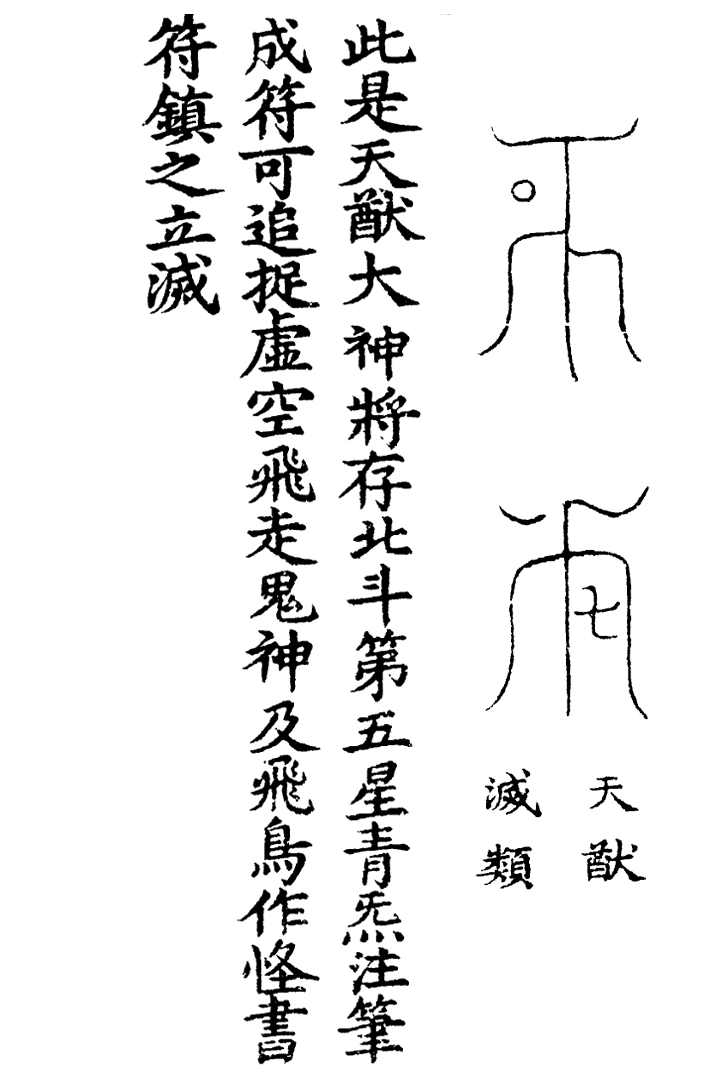 天猷
滅類
此是天猷大神將存北斗第五星青炁注筆
成符可追捉虛空飛走鬼神及飛鳥作怪書
符鎮之立滅